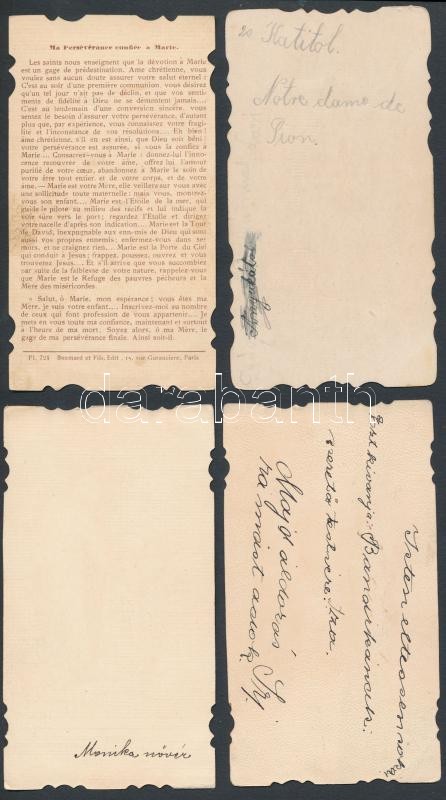 Ma Persévérance confiée à Marie.
Les saints nous enseignent que la dévotion à Marie
est un gage de prédestination. Ame chrétienne, vous
voulez sans aucun doute assurer votre salut éternel :
C'est au soir d'une première communion, vous désirez
qu'un tel jour n'ait pas de déclin, et que vos senti-
ments de fidélité à Dieu ne se démentent jamais....
C'est au lendemain d'une conversion sincère, vous
sentez le besoin d'assurer votre persévérance, d'autant
plus que, par expérience, vous connaissez votre fragi-
lité et l'inconstance de vos résolutions.... Eh bien !
âme chrétienne, s'il en est ainsi, que Dieu soit béni !
votre persévérance est assurée, si vous la confiez à
Marie.... Consacrez-vous à Marie : donnez-lui l'inno-
cence recouvrée de votre âme, offrez-lui l'amour
purifié de votre cœur, abandonnez à Marie le soin de
votre être tout entier, et de votre corps, et de votre
âme. — Marie est votre Mère, elle veillera sur vous avec
une sollicitude toute maternelle : mais vous, montrez-
vous son enfant.... Marie est l'Etoile de la mer, qui
guide le pilote au milieu des récifs et lui indique la
voie sûre vers le port ; regardez l'Etoile et dirigez
votre nacelle d'après son indication.... Marie est la Tour
de David, inexpugnable aux ennemis de Dieu qui sont
aussi vos propres ennemis ; enfermez-vous dans ses
murs, et ne craignez rien.... Marie est la Porte du Ciel
qui conduit à Jésus ; frappez, poussez, ouvrez et vous
trouverez Jésus.... Et s'il arrive que vous succombiez
par suite de la faiblesse de votre nature, rappelez-vous
que Marie est le Refuge des pauvres pécheurs et la
Mère des miséricordes.
« Salut, ô Marie, mon espérance ; vous êtes ma
Mère, je suis votre enfant.... Inscrivez-moi au nombre
de ceux qui font profession de vous appartenir.... Je
mets en vous toute ma confiance, maintenant et surtout
à l'heure de ma mort. Soyez alors, ô ma Mère, le
gage de ma persévérance finale. Ainsi soit-il.
Pl. 728 Boumard et Fils, Edit., 15, rue Garancière, Paris
Katitol.
Nôtre dame de
Sion.
Monika nővér
Isten éltessen sok
Bandikáncsi.
szerető testvére: Iza.
Majd áldozás
ra mást adok
darabanth